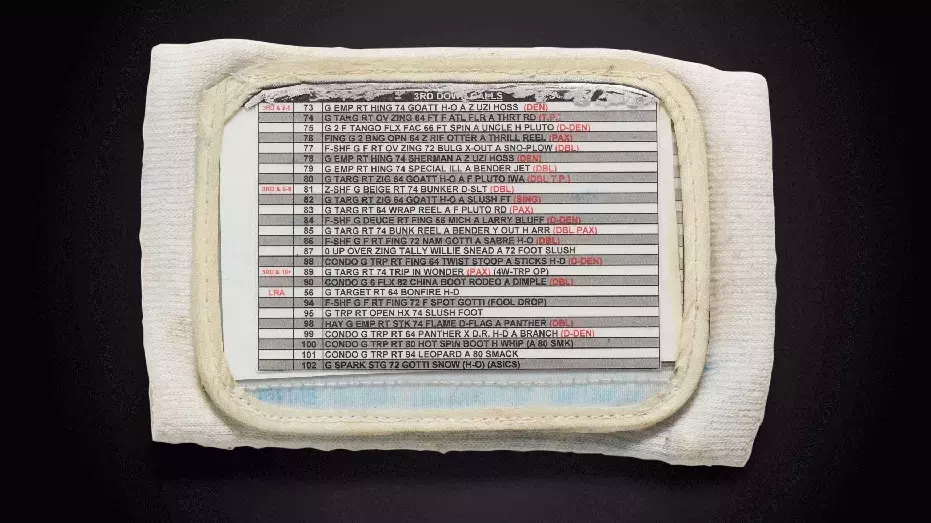 3RD DOWN CALLS
3RD & 2-5 73 G EMP RT HING 74 GOATT H-O A Z UZI HOSS (DEN)
74 G TARG RT OV ZING 64 FT F ATL FLR A THRT RD (T.P.)
75 G 2 F TANGO FLX FAC 66 FT SPIN A UNCLE H PLUTO (D-DEN)
76 FING G 2 BNG OPN 64 Z RIF OTTER A THRILL REEL (PAX)
77 F-SHF G F RT OV ZING 72 BULG X-OUT A SNO-PLOW (DBL)
78 G EMP RT HING 74 SHERMAN A Z UZI HOSS (DEN)
79 G EMP RT HING 74 SPECIAL ILL A BENDER JET (DBL)
80 G TARG RT ZIG 64 GOATT H-O A F PLUTO IWA (DBL T.P.)
3RD & 6-9 81 Z-SHF G BEIGE RT 74 BUNKER D-SLT (DBL)
82 G TARG RT ZIG 64 GOATT H-O A SLUSH FT (SING)
83 G TARG RT 64 WRAP REEL A F PLUTO RD (PAX)
84 F-SHF G DEUCE RT FING 56 MICH A LARRY BLUFF (D-DEN)
85 G TARG RT 74 BUNK REEL A BENDER Y OUT H ARR (DBL PAX)
86 F-SHF G F RT FING 72 NAM GOTTI A SABRE H-O (DBL)
87 0 UP OVER ZING TALLY WILLIE SNEAD A 72 FOOT SLUSH
88 CONDO G TRP RT FING 64 TWIST STOOP A STICKS H-D (D-DEN)
3RD & 10+ 89 G TARG RT 74 TRIP IN WONDER (PAX) (4W-TRP OP)
90 CONDO G 6 FLX 82 CHINA BOOT RODEO A DIMPLE (DBL)
LRA 56 G TARGET RT 64 BONFIRE H-D
94 F-SHF G F RT FING 72 F SPOT GOTTI (FOOL DROP)
95 G TRP RT OPEN HX 74 SLUSH FOOT
98 HAY G EMP RT STK 74 FLAME D-FLAG A PANTHER (DBL)
99 CONDO G TRP RT 64 PANTHER X D.R. H-D A BRANCH (D-DEN)
100 CONDO G TRP RT 80 HOT SPIN BOOT H WHIP (A 80 SMK)
101 CONDO G TRP RT 94 LEOPARD A 80 SMACK
102 G SPARK STG 72 GOTTI SNOW (H-O) (ASICS)